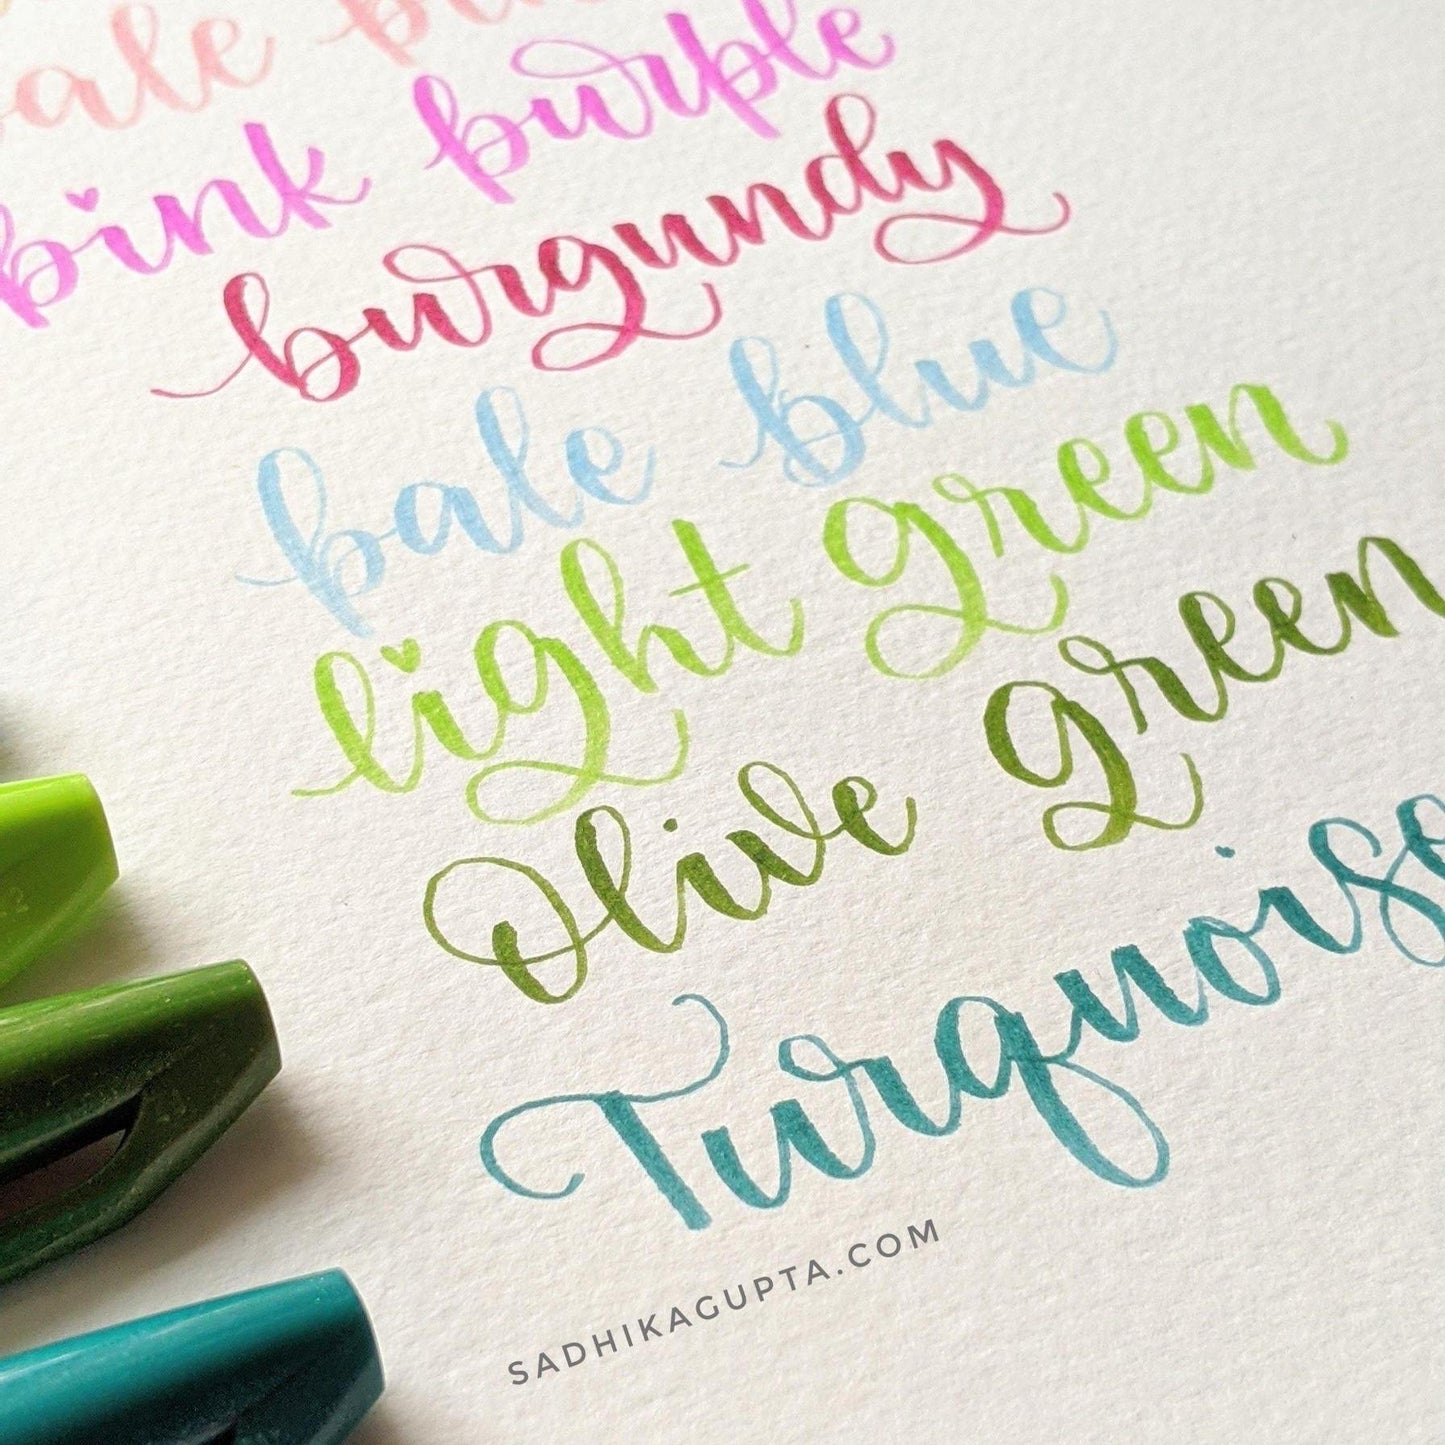 pale pin
pink purple
burgundy
pale blue
light green
Olive green
Turquoise
SADHIKAGUPTA.COM